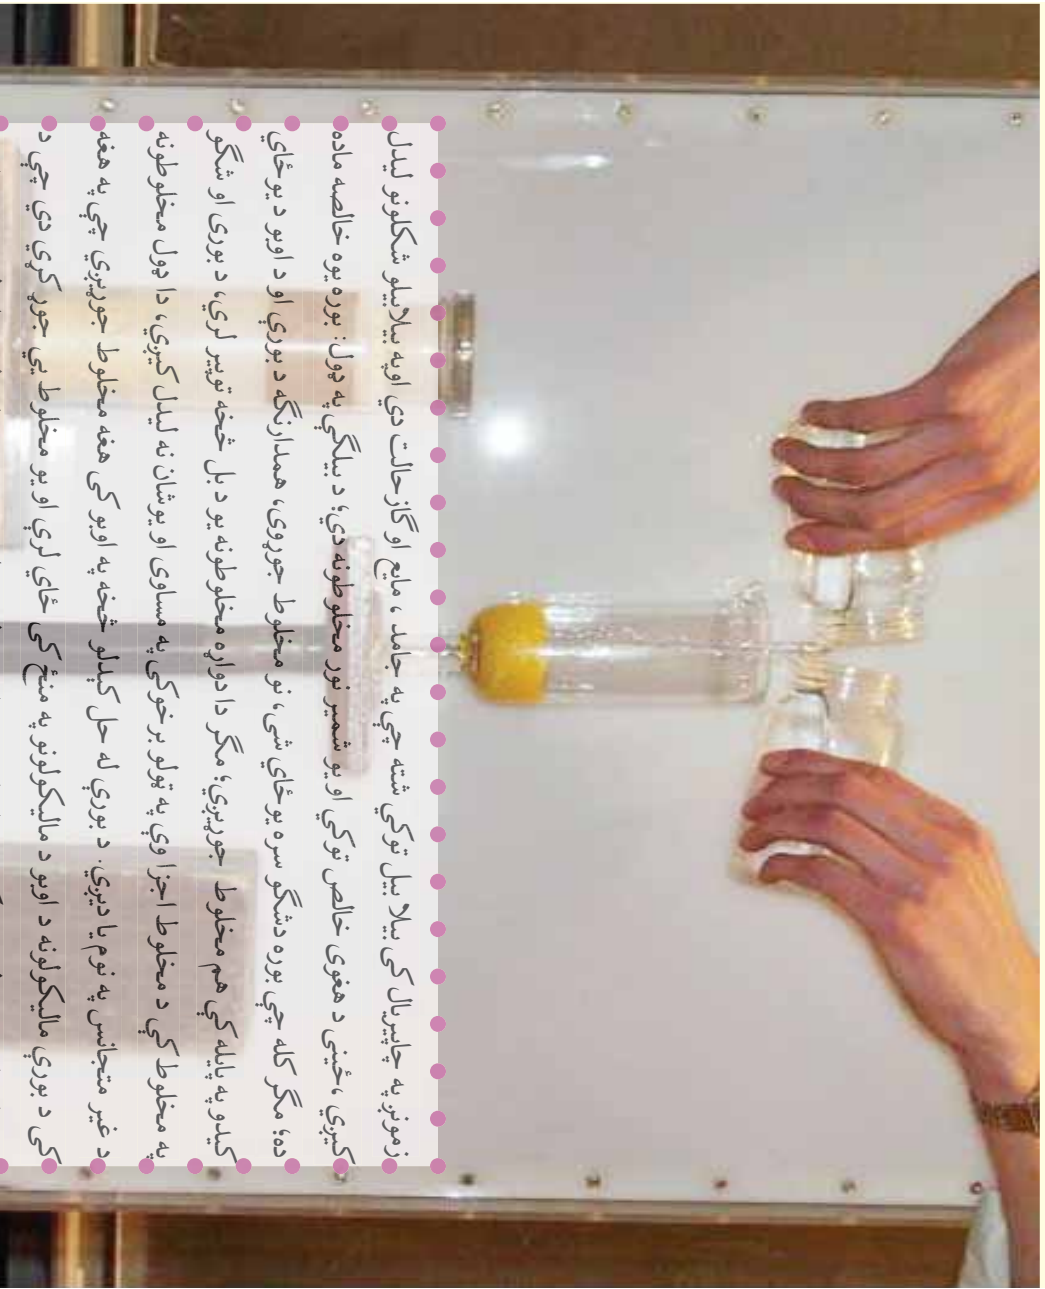 زمونږ په چاپیریال کی بیلا بیل توکي شته چې په جامد ، مایع او گاز حالت دي اوپه بیلابیلو شکلونو لیدل
کیږي ،ځینی د هغوی خالص توکي او یو شمیر نور مخلوطونه دي؛ د بیلگې په ډول: بوره یوه خالصه ماده
ده؛ مگر کله چې بوره دشگو سره یوځای شی، نو مخلوط جوړوی، همدارنگه د بورې او د اوبو د یوځای
کیدو په پایله کې هم مخلوط جوړیږي؛ مگر دا دواړه مخلوطونه یو د بل څخه توپیر لري، د بوری او شگو
په مخلوط کې د مخلوط اجزا وې په ټولو برخوکی په مساوی او یوشان نه لیدل کیږي، دا ډول مخلوطونه
د غیر متجانس په نوم یادیږي. د بورې له حل کیدلو څخه په اوبو کی هغه مخلوط جوړیږي چې په هغه
کی د بورې مالیکولونه د اوبو د مالیکولونو په منځ کی ځای لري او یو مخلوط یې جوړ کړي دي چې د